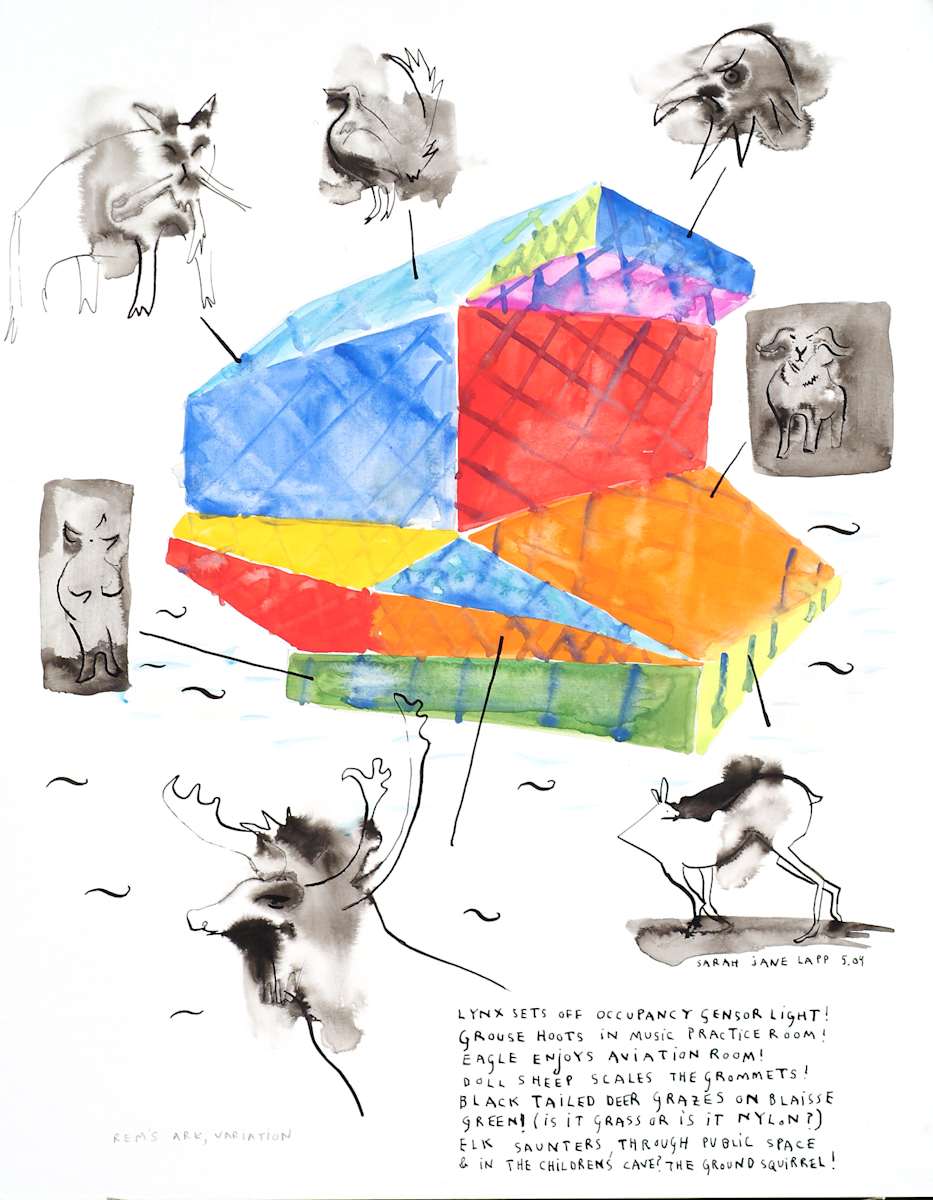 SARAH JANE LAPP 5.04
LYNX SETS OFF OCCUPANCY SENSOR LIGHT!
GROUSE HOOTS IN MUSIC PRACTICE ROOM!
EAGLE ENJOYS AVIATION ROOM!
DOLL SHEEP SCALES THE GROMMETS!
BLACK TAILED DEER GRAZES ON BLAISSE
GREEN! (IS IT GRASS OR IS IT NYLON?)
ELK SAUNTERS THROUGH PUBLIC SPACE
& IN THE CHILDREN'S CAVE? THE GROUND SQUIRREL!
REM'S ARK, VARIATION